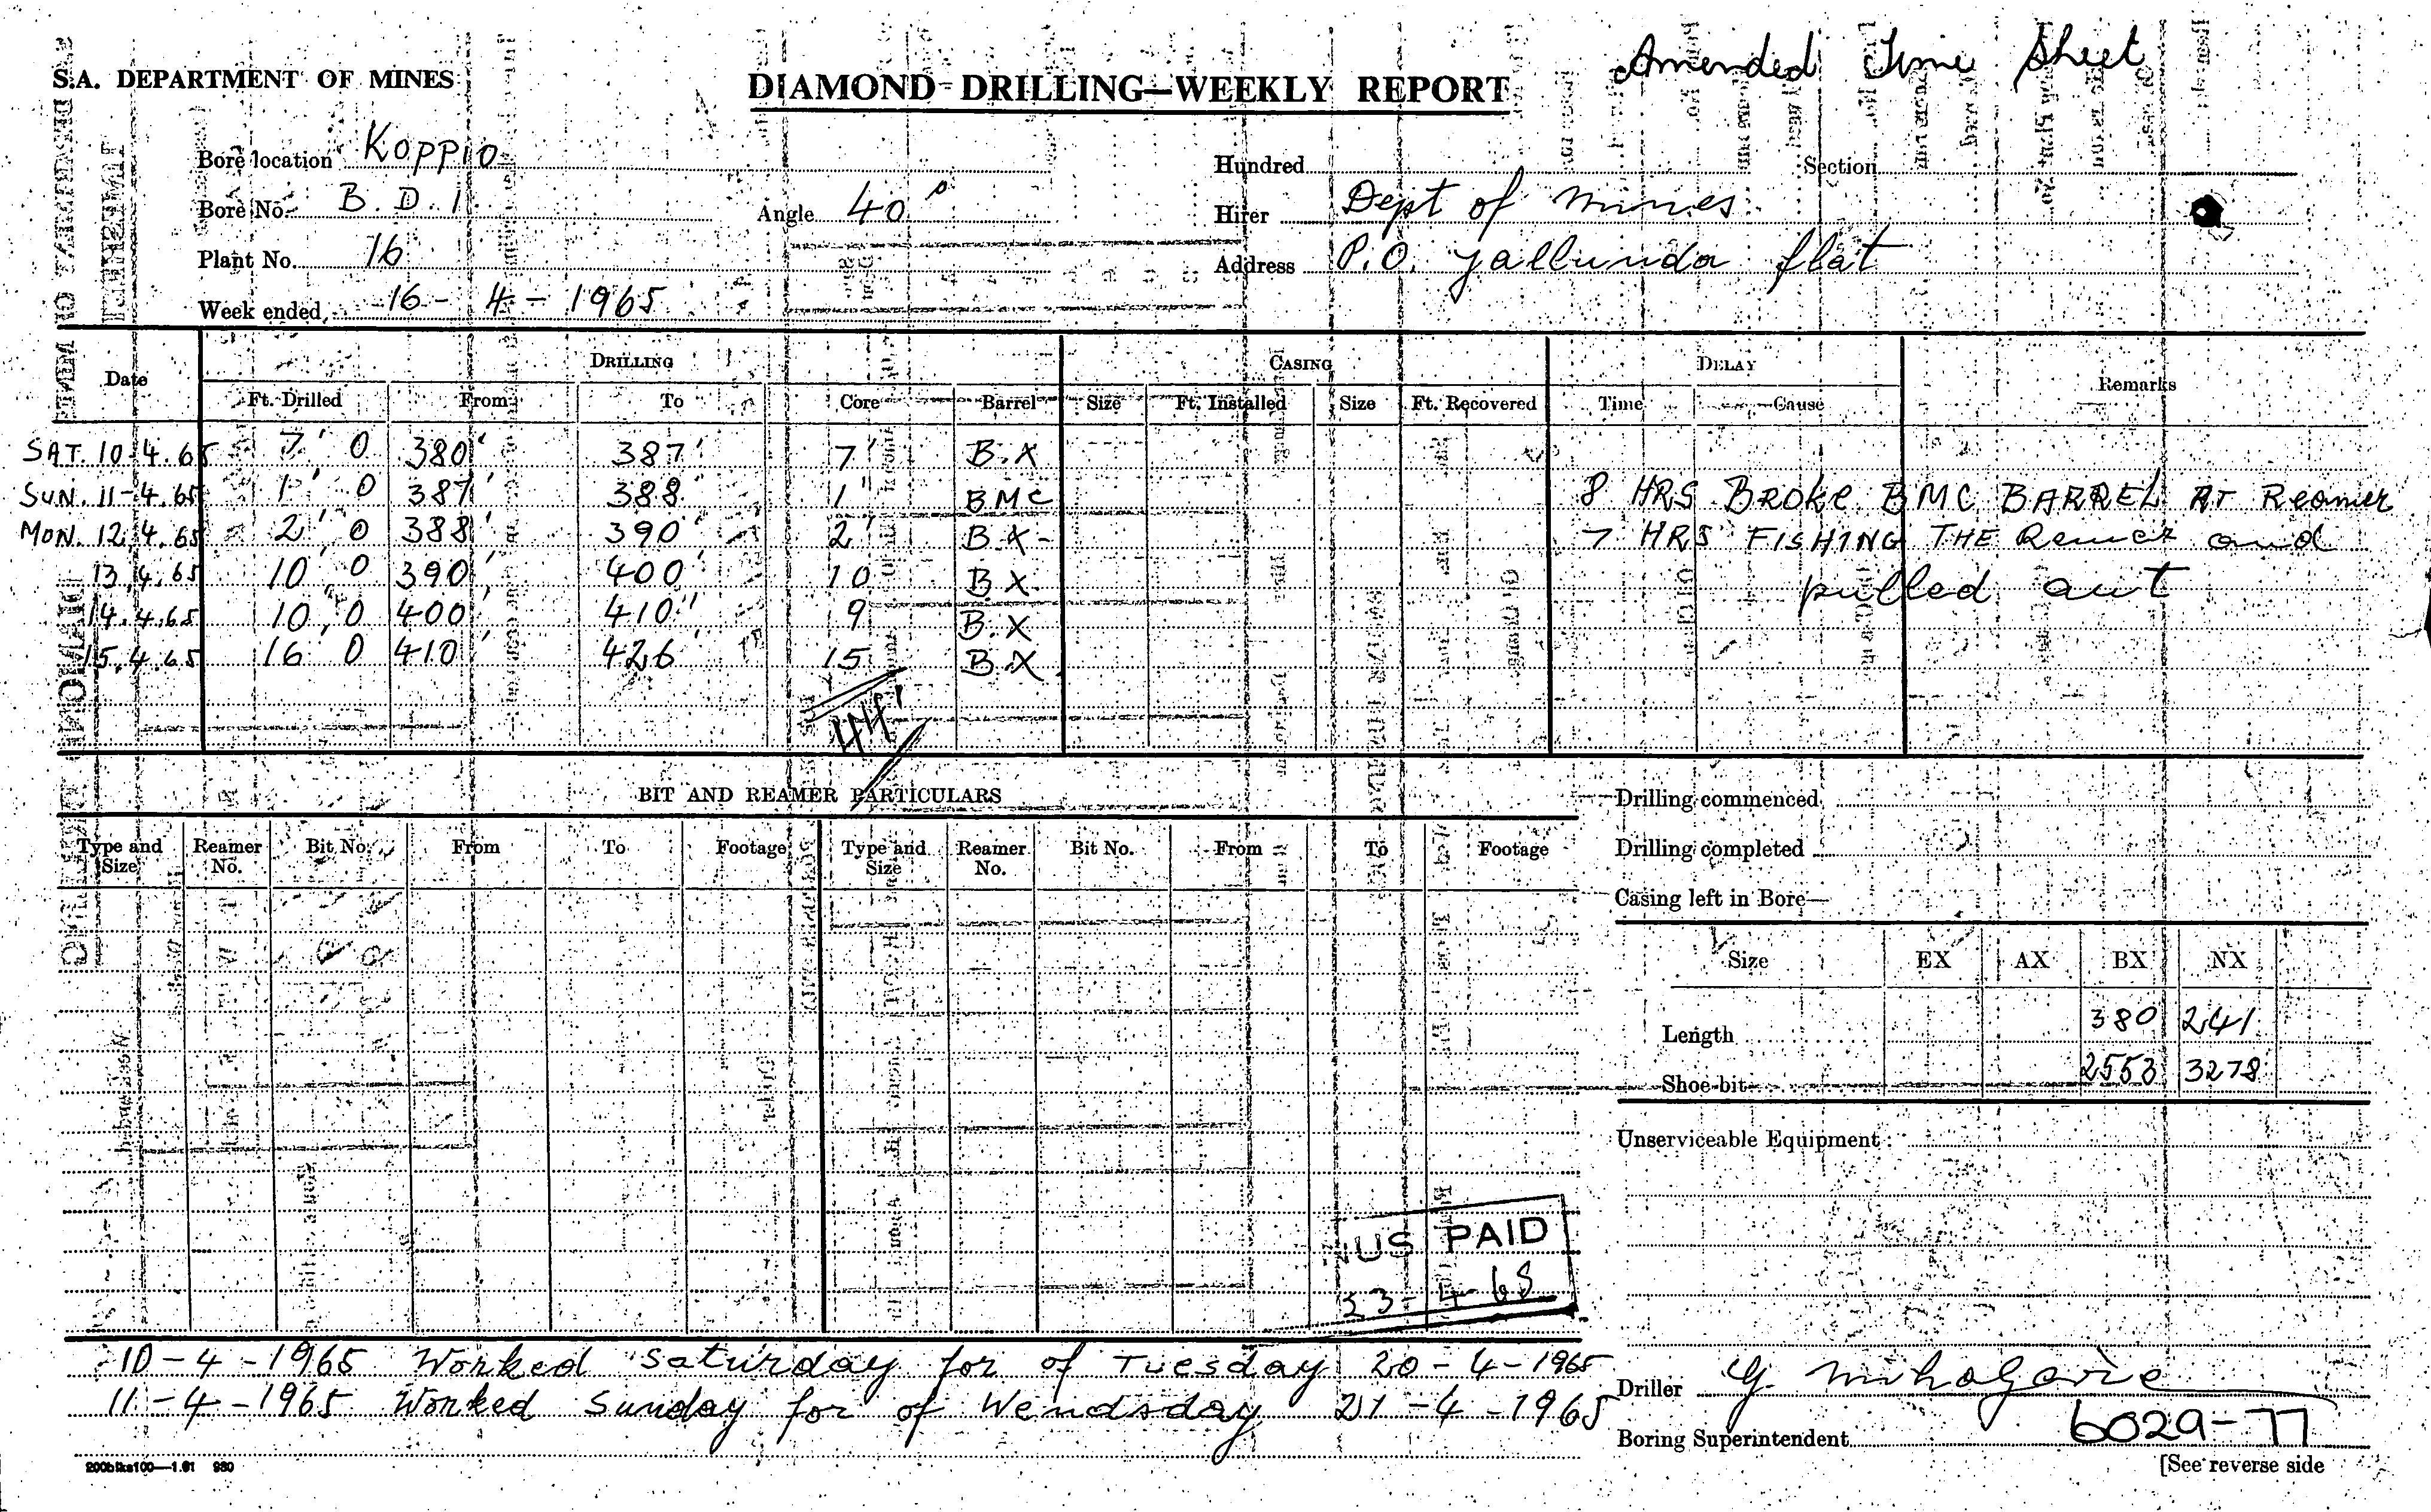 Amended Time Sheet
S.A. DEPARTMENT OF MINES
DIAMOND DRILLING—WEEKLY REPORT
Bore location Koppio
Hundred Section
Bore No. B.D.1. Angle 40°
Hirer Dept of Mines
Plant No. 16
Address P.O. Yallunda flat
Week ended 16-4-1965
Date DRILLING CASING DELAY Remarks
Ft. Drilled From To Core Barrel Size Ft. Installed Size Ft. Recovered Time Cause
SAT. 10.4.65 7' 0 380' 387' 7' B.X
SUN. 11-4.65 1' 0 387' 388' 1' BMC 8 HRS BROKE BMC BARREL AT Reamer
MON. 12.4.65 2' 0 388' 390' 2' B.X- 7 HRS FISHING THE and
13.4.65 10' 0 390' 400' 10 BX pulled aut
14.4.65 10' 0 400' 410' 9 B.X
15.4.65 16 0 410' 426' 15 B.X
44'
BIT AND REAMER PARTICULARS
Type and Size Reamer No. Bit No. From To Footage Type and Size Reamer No. Bit No. From To Footage
Drilling commenced
Drilling completed
Casing left in Bore—
Size EX AX BX NX
Length 380 241
Shoe bit 2553 3278
Unserviceable Equipment
NUS PAID
23-4-65
10-4-1965 Worked Saturday for of Tuesday 20-4-1965
11-4-1965 Worked Sunday for of Wendsday 21-4-1965
Driller
Boring Superintendent 6029-77
200blks100—1.61 980
[See reverse side